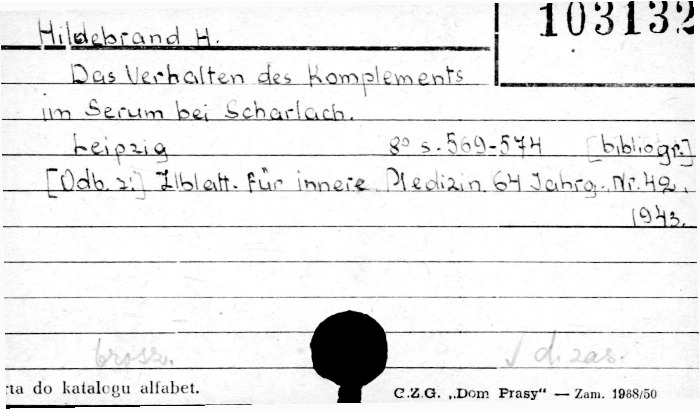 103132
Hildebrand H.
Das Verhalten des Komplements
im Serum bei Scharlach.
Leipzig 8º s. 569-574 [bibliogr.]
[Odb. z:] Zlblatt. für innere Medizin. 64 Jahrg. Nr. 42.
1943.
brosz. √ d. zas.
rta do katalogu alfabet. C.Z.G. „Dom Prasy" — Zam. 1988/50